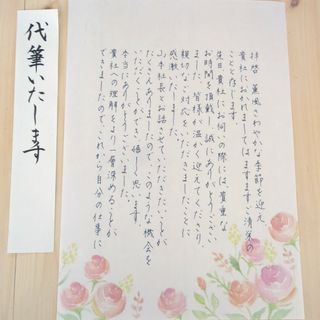 拝啓 薫風さわやかな季節を迎え
貴社におかれましてはますますご清栄の
こととと存じます。
先日貴社にお伺の際には、貴重な
お時間を頂戴し誠にありがとうござい
ました。皆様が温かく迎えてくださり、
親切なご対応をいただきましたことに
感激いたしました。
山本社長とお話させていただきたいことが
たくさんありましたので、このような機会を
いただくことができて嬉しく思います。
本当にありがとうございました。
貴社への理解をより一層深めることが
できましたので、これから自分の仕事に
代筆いたします